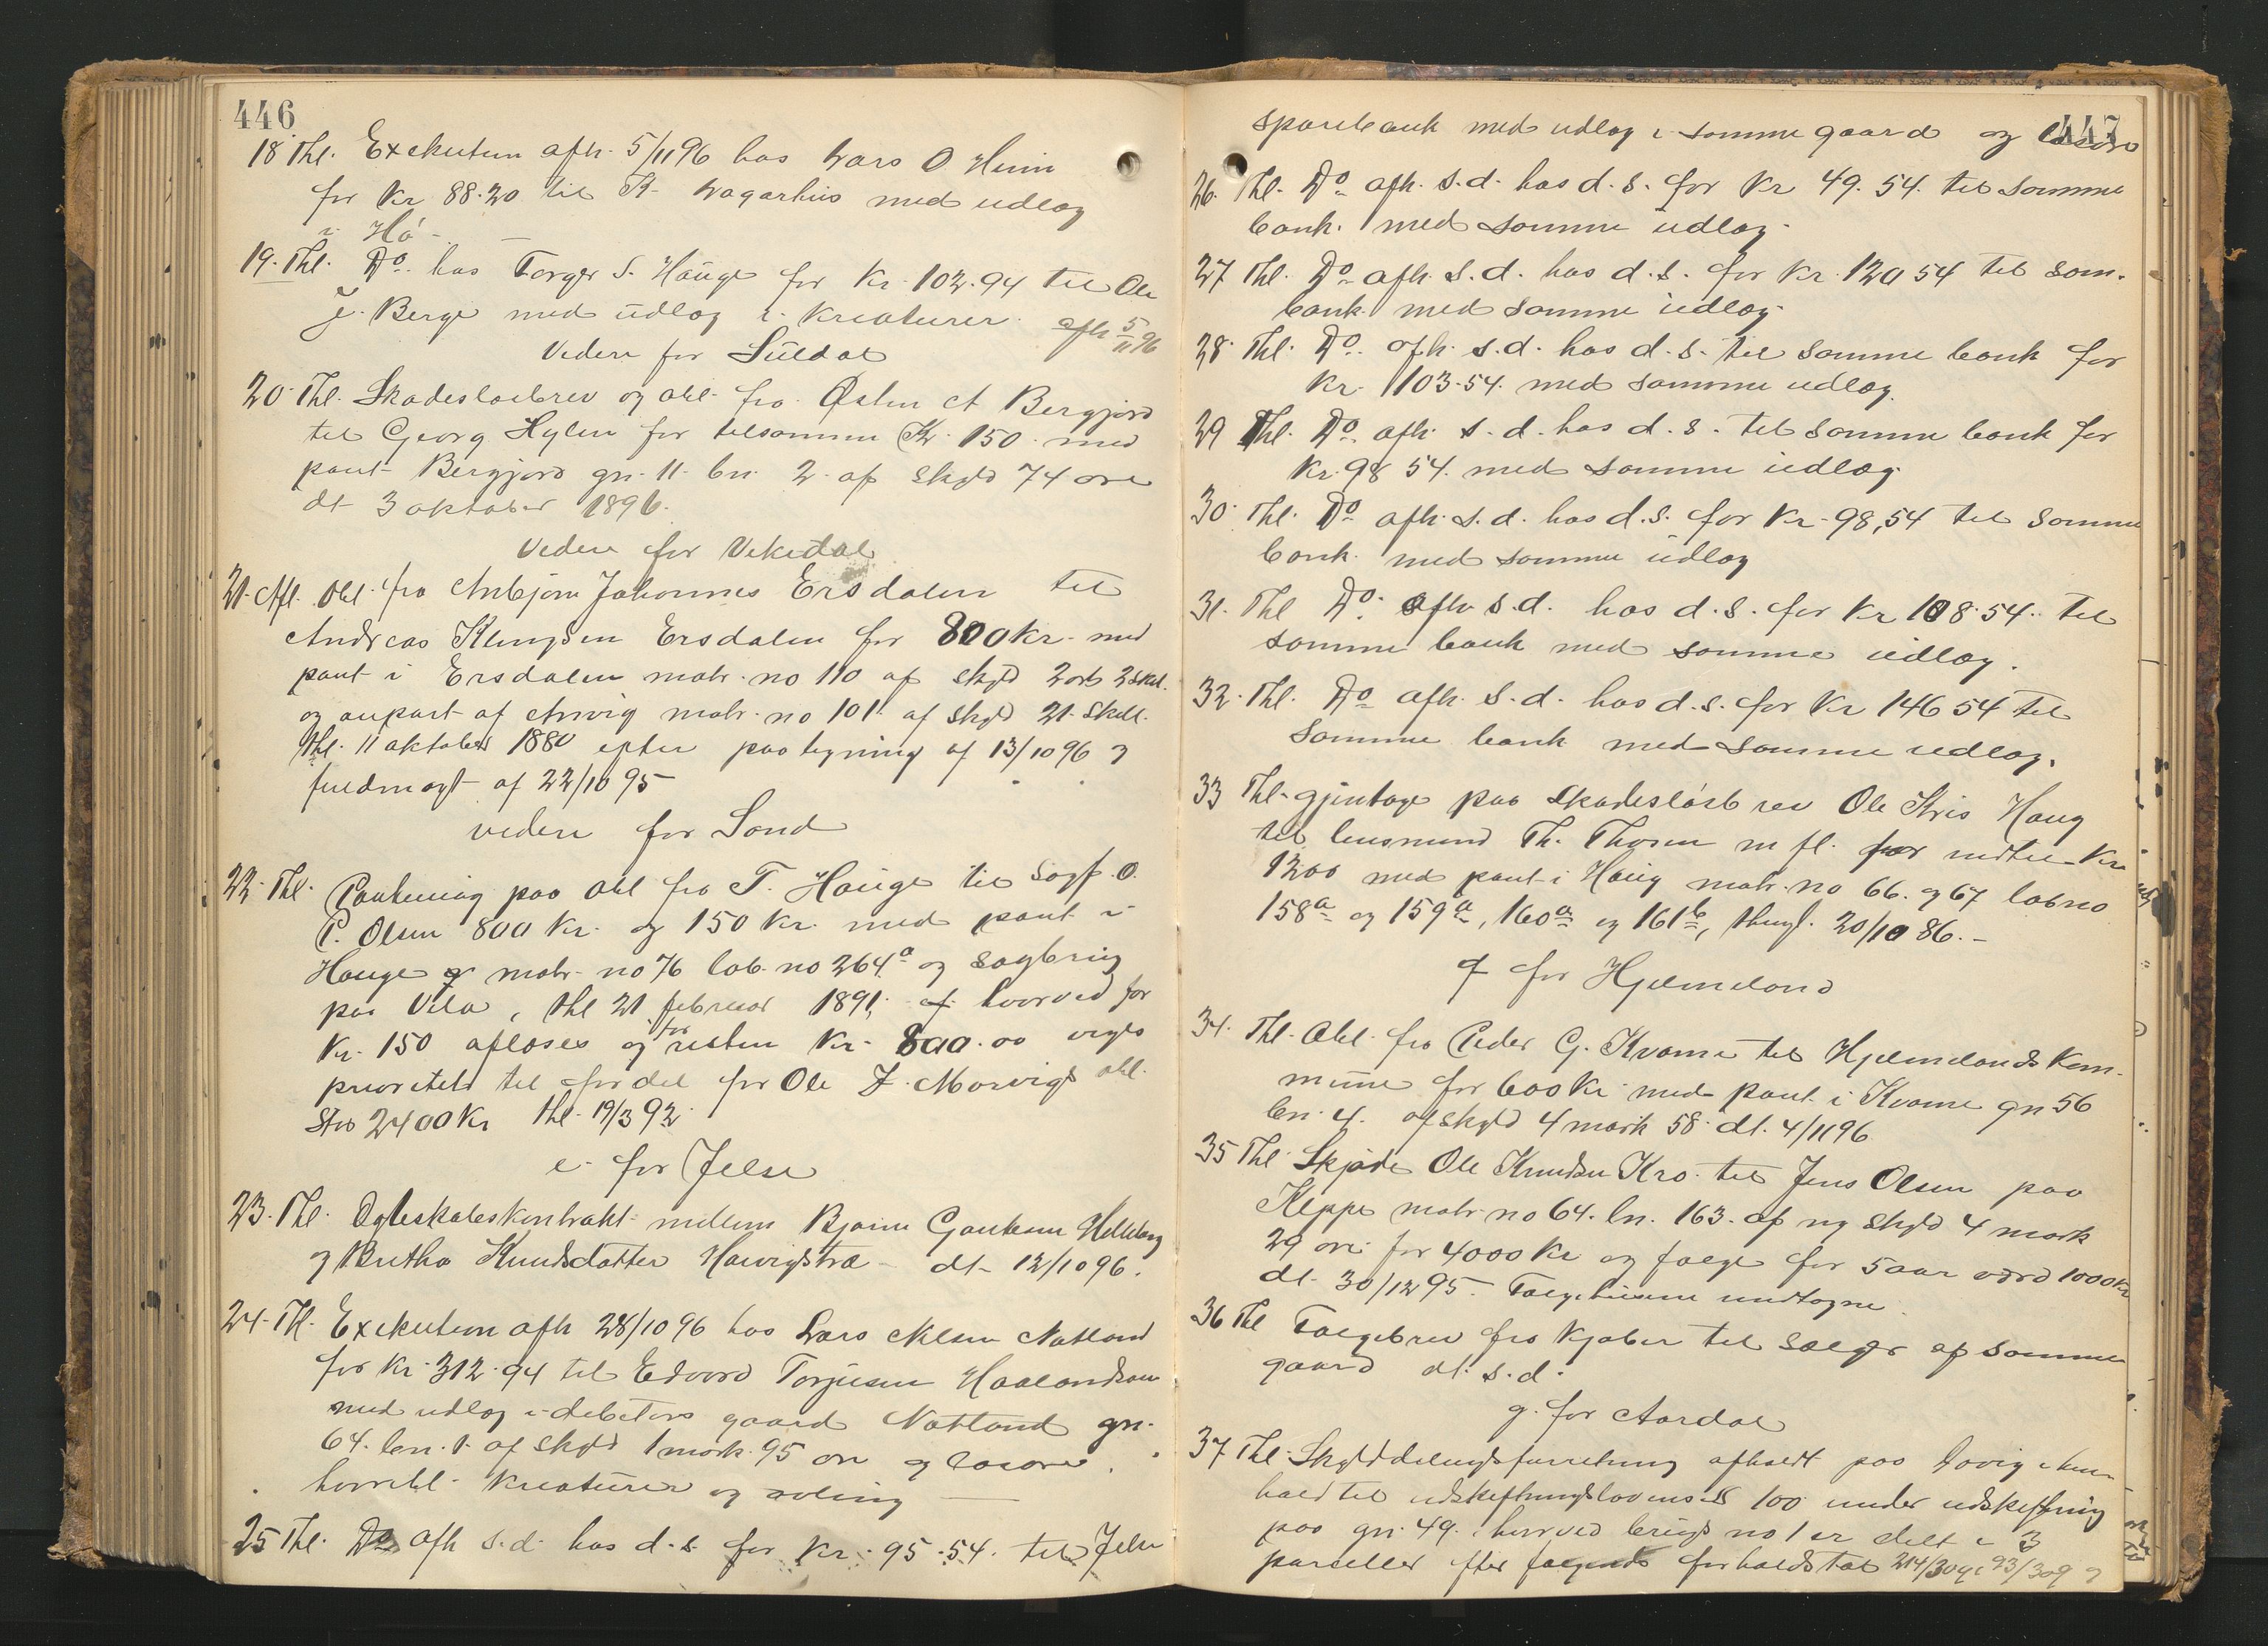 446
18 Thl. Exekution afh. 5/11 96 hos Lars O Heim
for Kr 88.20 til St. Lagarhus med udlæg
i Hö
19. Thl. Do. hos Torger S. Hauge for Kr. 102.94 til Ole
J. Berge med udlæg i kreaturer. afh 5/11 96
Videre for Suldal
20. Thl. Skadesløsbrev og obl. fra Østen A Bergjord
til Georg Hylen for tilsammen Kr. 150 med
pant Bergjord gn. 11 bn. 2 af skyld 74 øre
dt 3 oktober 1896.
Videre for Vikedal
21. Afl. Obl. fra Anbjørn Johannes Ersdalen til
Andreas Ersdalen for 800 kr. med
pant i Ersdalen matr. no 110 af skyld 2 ort 2 skil.
og anpart af Anvig matr. no 101 af skyld 21 skill.
thl. 11 oktober 1880 efter paategning af 13/10 96 og
fuldmagt af 22/10 95
videre for Sand
22. Thl. paa obl fra T. Hauge til Sagf. O.
P. Olsen 800 Kr. og 150 Kr. med pant i
Hauge matr. no 76 løb. no 264a og sagbrug
paa Vela, thl 21 februar 1891, hvorved for
Kr. 150 afløses og for resten Kr. 800.00 viges
prioritet til fordel for Ole obl.
Stor 2400 Kr thl. 19/3 92.
e. for Jelse
23. Thl. Egteskabskontrakt mellem Bjarne Gautesen
og Bertha Knudsdatter dt. 12/10 96.
24. Thl. Exekution afh 28/10 96 hos Lars Natland
for Kr. 312.94 til Edvard Torjusen Haalandsen
med udlæg i debitors gaard Natland gn.
64. bn. 1. af skyld 1 mark 95 øre og løsøre.
kreaturer og avling
25 Thl. Do afh s.d. hos d.s. for Kr. 95.54. til Jelse
447
sparebank med udlæg i samme gaard og løsøre
26. Thl. Do afh. s.d. hos d.s. for Kr 49.54. til samme
bank. med samme udlæg.
27 Thl. Do afh. s.d. hos d.s. for Kr. 120 54 til sam.
bank. med samme udlæg.
28. Thl. Do. afh. s.d. hos d.s. til samme bank for
Kr. 103.54. med samme udlæg.
29 Thl. Do. afh. s.d. hos d.s. til samme bank for
Kr. 98 54. med samme udlæg.
30. Thl. Do afh. s.d. hos d.s. for Kr. 98,54 til samme
bank. med samme udlæg
31. Thl Do. afh s.d. hos d.s. for Kr 108.54. til
samme bank med samme udlæg.
32. Thl. Do afh. s.d. hos d.s. for Kr 146 54 til
samme bank med samme udlæg.
33 Thl. gjentage paa skadesløsbrev Ole Kris Haug
til lensmand Th. Thorsen m fl. for indtil Kr
1200 med pant i Haug matr. no 66. og 67 løbno
158a og 159a, 160a og 161b, thingl. 20/10 86.
f for Hjelmeland
34. Thl. Obl. fra Peder G. Kvame til Hjelmelands kom-
mune for 600 Kr med pant i Kvame gn 56
bn. 4. af skyld 4 mark 58 dt. 4/11 96
35 Thl Skjøde Ole Knudsen Kro til Jens Olsen paa
Kleppe matr. no 64. ln. 163. af ny skyld 4 mark
29 øre for 4000 Kr og folge for 5 aar værd 1000 Kr
dt. 30/12 95. undtagne.
36 Thl Folgebrev fra kjøber til sælger af samme
gaard dt. s.d.
g. for Aardal
37 Thl. Skylddelingsforretning afholdt paa i hen-
hold til udskiftningslovens § 100 under udskiftning
paa gn. 49. hvorved brugs no 1 er delt i 3
parseller efter følgende forholdstal 214/309, 93/309 og